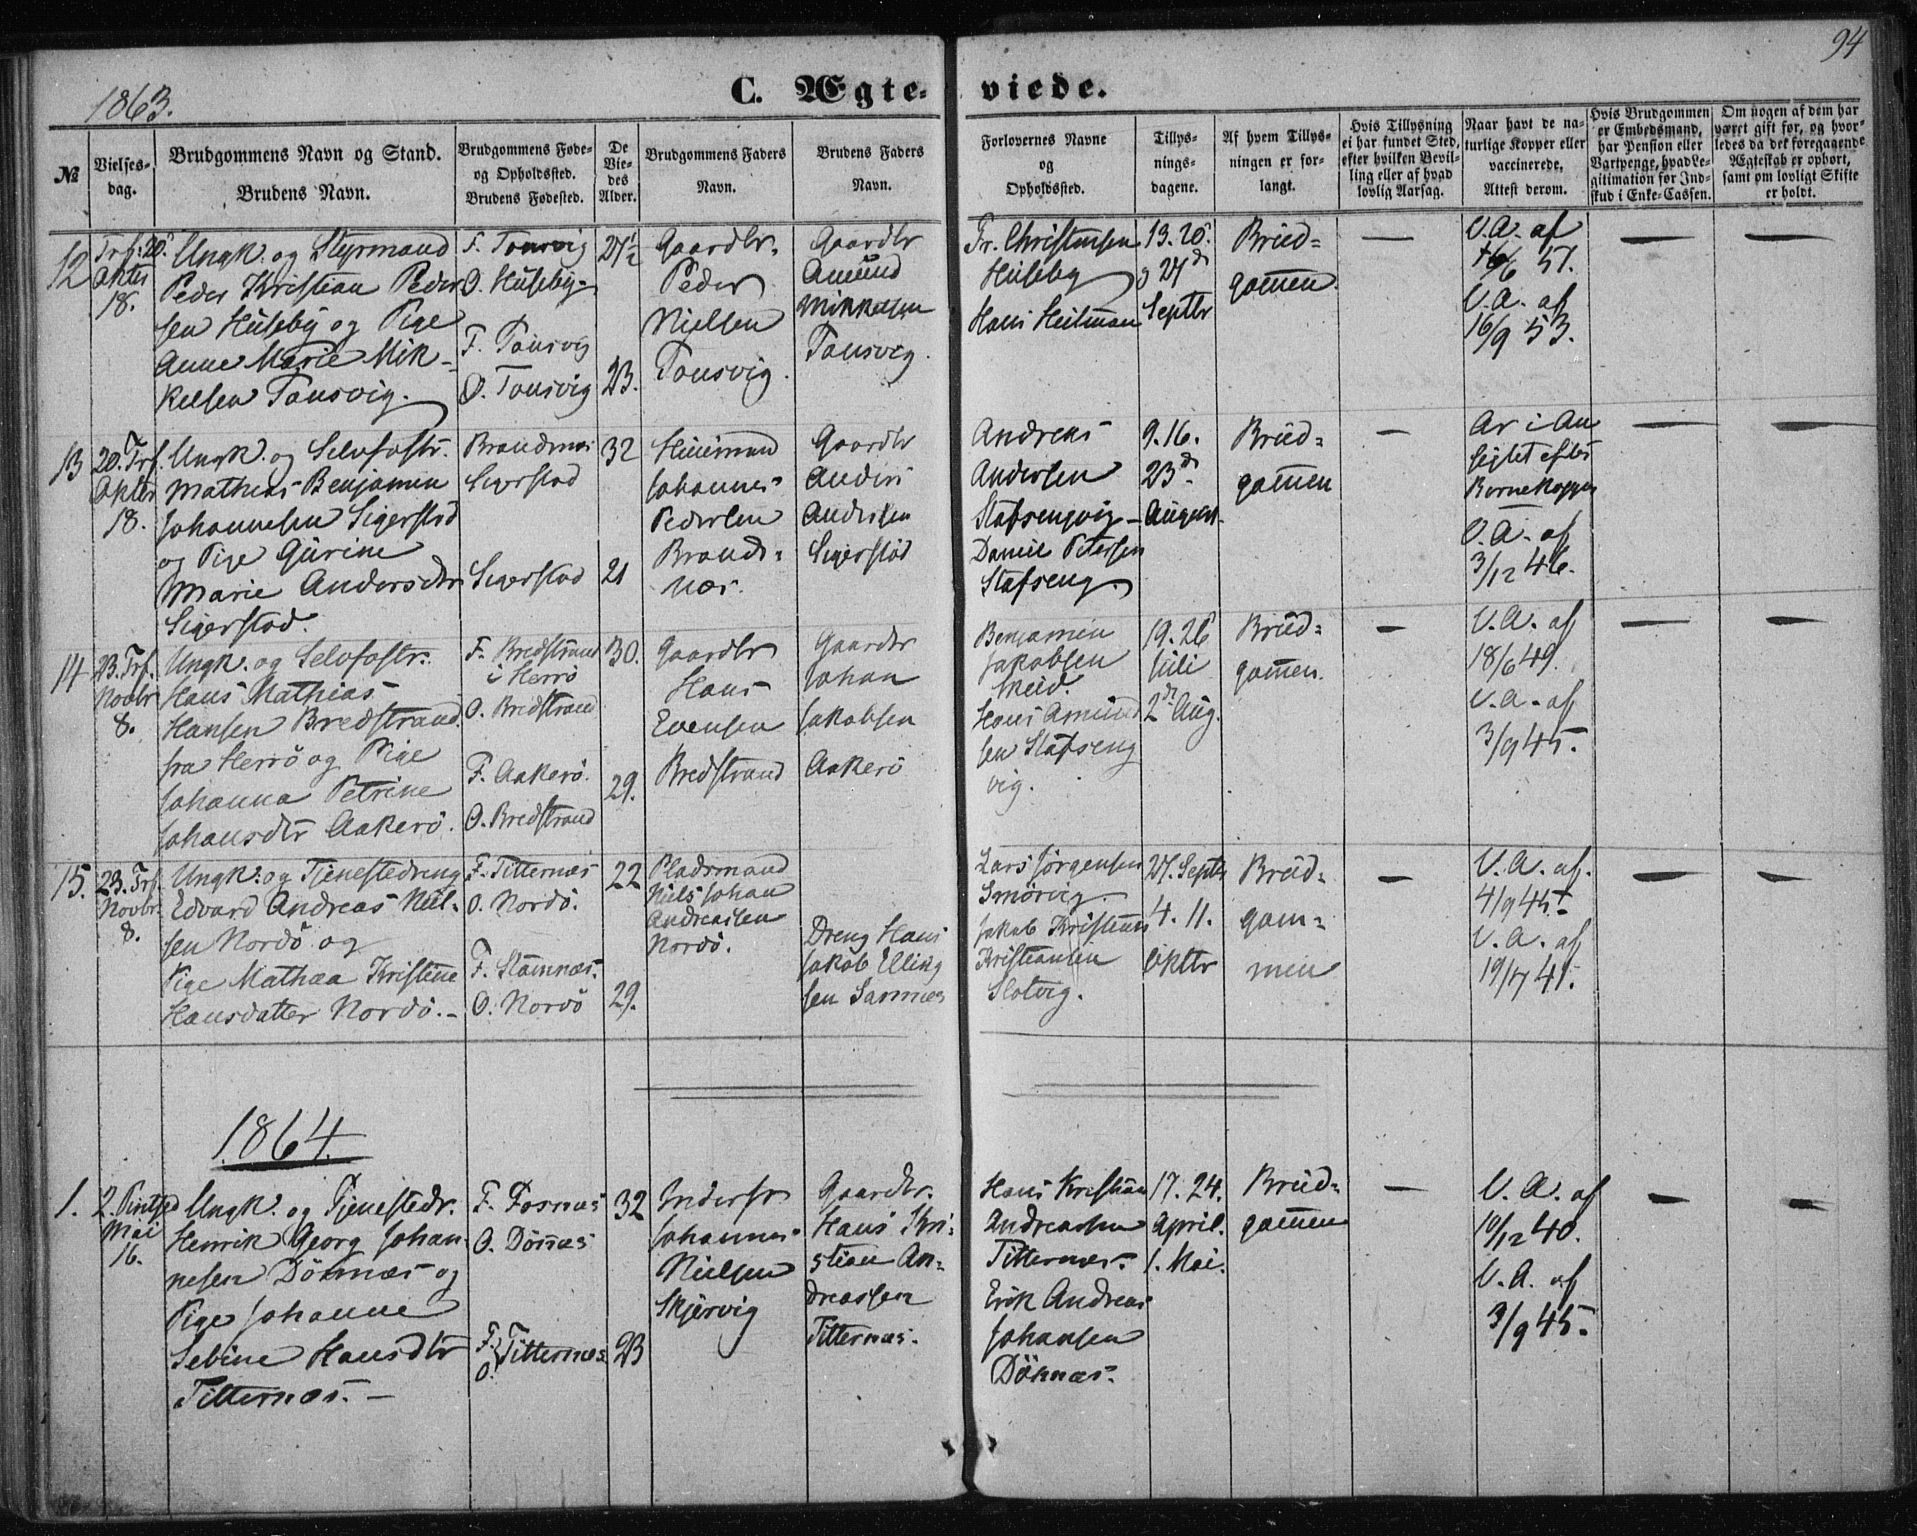 94
1863.
C. Ægteviede.
№
Vielses-
dag.
Brudgommens Navn og Stand.
Brudens Navn.
Brudgommens Føde-
og Opholdssted.
Brudens Fødested.
De
Vie-
des
Alder.
Brudgommens Faders
Navn.
Brudens Faders
Navn.
Forlovernes Navne
og
Opholdssted.
Tillys-
nings-
dagene.
Af hvem Tillys-
ningen er for-
langt.
Hvis Tillysning
ei har fundet Sted,
efter hvilken Bevil-
ling eller af hvad
lovlig Aarsag.
Naar havt de na-
turlige Kopper eller
vaccinerede,
Attest derom.
Hvis Brudgommen
er Embedsmand,
har Pension eller
Vartpenge, hvad Le-
gitimation for Ind-
skud i Enke-Cassen.
Om nogen af dem har
været gift før, og hvor-
ledes da det foregaaende
Ægteskab er ophørt,
samt om lovligt Skifte
er holdt.
12
Trf: 20.
Okter
18.
Ungk. og Styrmand
Peder Kristian Peder
sen Huseby og Pige
Anne Marie Mik-
kelsen Tonsvig.
F. Tonsvig
O. Huseby
F. Tonsvig
O. Tonsvig
27½
23.
Gaardbr.
Peder
Nielsen
Tonsvig.
Gaardbr
Amund
Mikkelsen
Tonsvig.
Fr. Christensen
Huseby
Hans Heitman
13. 20.
g 27d
Septbr
Brud=
gommen
—
V. A. af
16/6 57.
V. A. af
16/9 53.
—
—
13
20. Trf.
Okter
18.
Ungk. og Selvfostr.
Mathias Benjamin
Johannesen Sigerstad
og Pige Gurine
Marie Andersdtr
Sigerstad.
Brandsnæs
Sigerstad
Sigerstad
32
21
Huusmand
Johannes
Pedersen
Brands=
næs.
Gaardbr
Anders
Andersen
Sigerstad
Andreas
Andersen
Stafsengvig
Daniel Petersen
Stafseng.
9. 16.
23d
August.
Brud=
gommen
—
Ar i An
sigtet efter
Bornekopper
V. A. af
3/12 46.
—
—
14
23. Trf.
Novbr
8.
Ungk. og Selvfostr.
Hans Mathias
Hansen Bredstrand
fra Herrö og Pige
Johanna Petrine
Johansdtr Aakerö.
F. Bredstrand
i Herrö
O. Bredstrand
F. Aakerö.
O. Bredstrand
30.
29.
Gaardbr
Hans
Evensen
Bredstrand
Gaardbr
Johan
Jakobsen
Aakerö
Benjamin
Jakobsen
Hans Amund
sen Stafseng
vig.
19. 26
Juli
2d Aug.
Brud=
gommen.
—
V. A. af
18/6 49.
V. A. af
3/9 45.
—
—
15.
23. Trf.
Novbr.
8.
Ungk. og Tjenestedreng
Edvard Andreas Niel-
sen Nordö og
Pige Mathæa Kristine
Hansdatter Nordö.-
F. Titternæs
O. Nordö.
F. Stamnæs.
O. Nordö
22
29.
Pladsmand
Niels Johan
Andreassen
Nordö.
Dreng Hans
Jakob Elling
sen Samnæs
Lars Jörgensen
Smörvig.
Jakob Kristian
Kristiansen
Slotvig.
27. Septbr
4. 11.
Oktbr
Brud-
gom-
men
—
V. A. af.
4/9 45.
V. A. af
19/7 41.
—
—
1864.
1.
2. Pintsed
Mai
16.
Ungk. og Tjenestedr.
Henrik Georg Johan-
nesen Dönnæs og
Pige Johanne
Sebine Hansdtr
Titternæs. -
F. Fosnæs
O. Dönnæs
F.
O. Titternæs
32
23
Inderst
Johannes
Nielsen
Skjervig
Gaardbr.
Hans Kri-
stian An-
dreassen
Titternæs.
Hans Kristian
Andreassen
Titternæs.
Erik Andreas
Johansen
Dönnæs.
17. 24.
April.
1. Mai.
Brud=
gommen
—
V. A. af
10/12 40.
V. A. af
3/9 45.
—
—